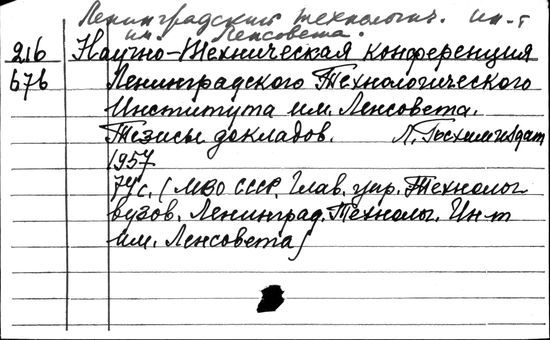 Ленинградский технологич. ин-т
им. Ленсовета.
216 Научно-Техническая конференция
676 Ленинградского Технологического
Института им. Ленсовета.
Тезисы докладов. Л. Госхимиздат
1957
74 с. (МВО СССР. Глав. упр. Технолог.
вузов. Ленинград. Технолог. Ин-т
им. Ленсовета)